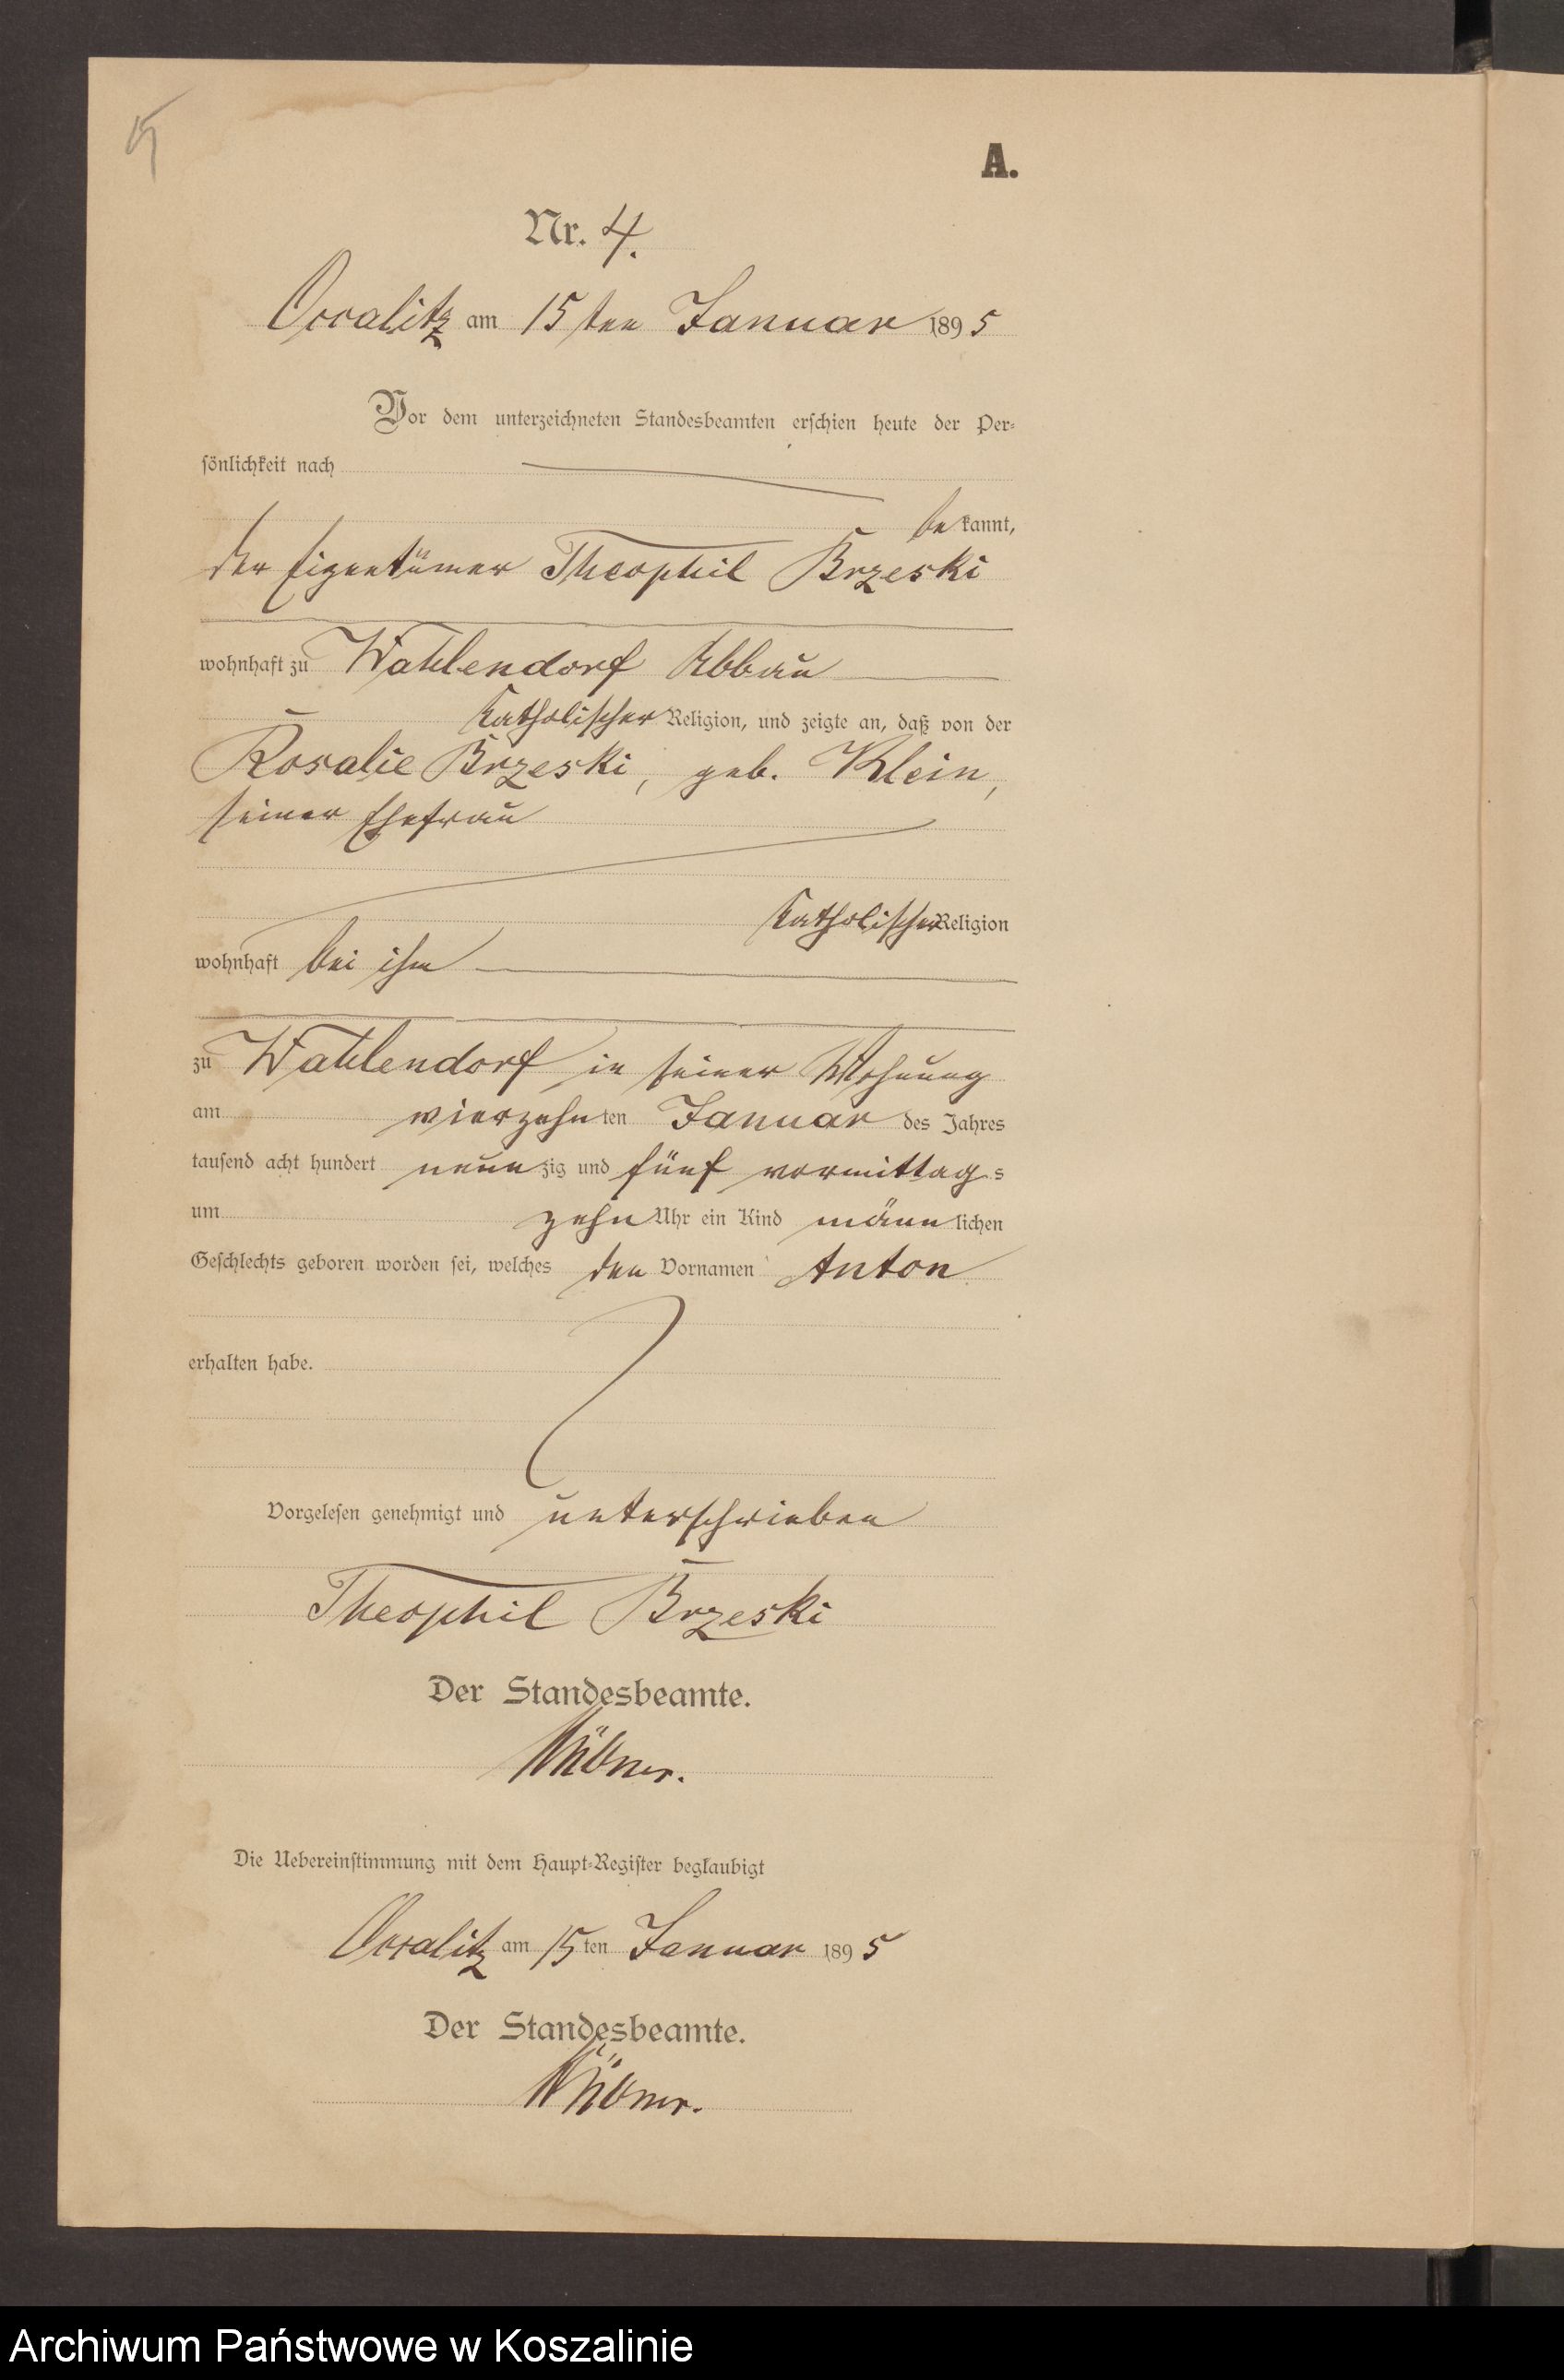 5
A.
Nr. 4.
Ossalitz am 15ten Januar 1895
Vor dem unterzeichneten Standesbeamten erschien heute der Per-
sönlichkeit nach
bekannt,
der Eigentümer Theophil Brzeski
wohnhaft zu Wahlendorf Abbau
katholischer Religion, und zeigte an, daß von der
Rosalie Brzeski, geb. Klein,
seiner Ehefrau
katholischer Religion
wohnhaft bei ihm
zu Wahlendorf in seiner Wohnung
am vierzehnten Januar des Jahres
tausend acht hundert neunzig und fünf vormittags
um zehn Uhr ein Kind männlichen
Geschlechts geboren worden sei, welches den Vornamen Anton
erhalten habe.
Vorgelesen genehmigt und unterschrieben
Theophil Brzeski
Der Standesbeamte.
Die Uebereinstimmung mit dem Haupt-Register beglaubigt
Ossalitz am 15ten Januar 1895
Der Standesbeamte.
Archiwum Państwowe w Koszalinie